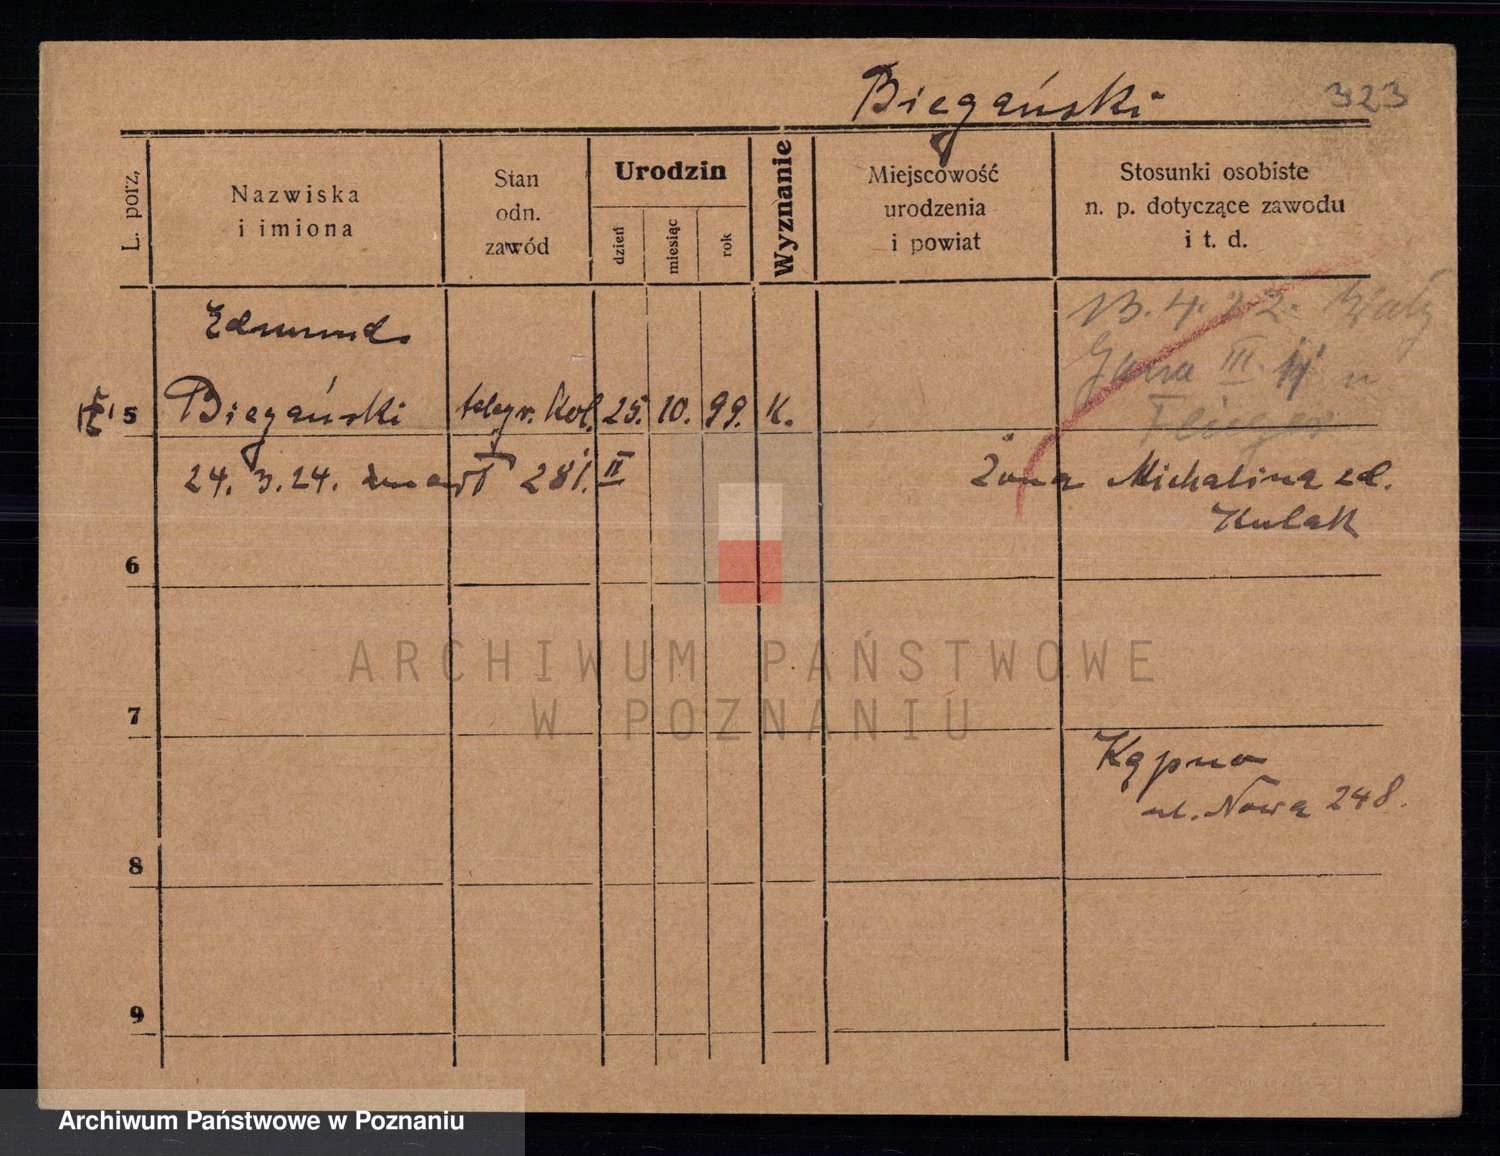 Biegański 323
L. porz.
Nazwiska
i imiona
Stan
odn.
zawód
Urodzin
dzień
miesiąc
rok
Wyznanie
Miejscowość
urodzenia
i powiat
Stosunki osobiste
n. p. dotyczące zawodu
i t. d.
13. 4. 22.
Jana III
Edmund
5 Biegański telegr. Kol. 25. 10. 99. K.
24. 3. 24. zmarł 281. II
Żona Michalina zd.
Kulak
6
7
Kępno
ul. Nowa 248.
8
9
ARCHIWUM PAŃSTWOWE
W POZNANIU
Archiwum Państwowe w Poznaniu